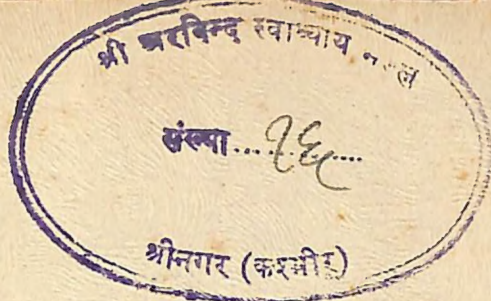 श्री अरविन्द स्वाध्याय मण्डल
संख्या ....१६....
श्रीनगर (कश्मीर)